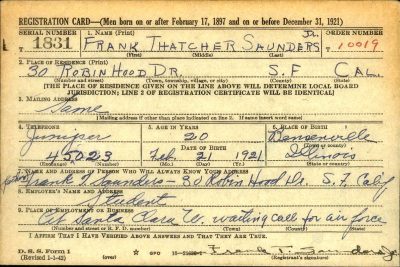 REGISTRATION CARD—(Men born on or after February 17, 1897 and on or before December 31, 1921)
SERIAL NUMBER 1. NAME (Print) ORDER NUMBER
1831 FRANK THATCHER SAUNDERS Jr. 10019
(First) (Middle) (Last)
2. PLACE OF RESIDENCE (Print)
30 ROBIN HOOD DR. S.F CAL.
(Number and street) (Town, township, village, or city) (County) (State)
[THE PLACE OF RESIDENCE GIVEN ON THE LINE ABOVE WILL DETERMINE LOCAL BOARD
JURISDICTION; LINE 2 OF REGISTRATION CERTIFICATE WILL BE IDENTICAL]
3. MAILING ADDRESS
Same
[Mailing address if other than place indicated on line 2. If same insert word same]
4. TELEPHONE 5. AGE IN YEARS 6. PLACE OF BIRTH
Juniper 20 Bensenville
DATE OF BIRTH (Town or county)
45023 Feb 21 1921 Illinois
(Exchange) (Number) (Mo.) (Day) (Yr.) (State or country)
7. NAME AND ADDRESS OF PERSON WHO WILL ALWAYS KNOW YOUR ADDRESS
Frank T Saunders - 30 Robin Hood Dr. S.F. Cal
8. EMPLOYER'S NAME AND ADDRESS
Student
9. PLACE OF EMPLOYMENT OR BUSINESS
At Santa Clara U. waiting call for air force
(Number and street or R. F. D. number) (Town) (County) (State)
I AFFIRM THAT I HAVE VERIFIED ABOVE ANSWERS AND THAT THEY ARE TRUE.
D. S. S. Form 1
(Revised 1-1-42) GPO Frank T. Saunders Jr.